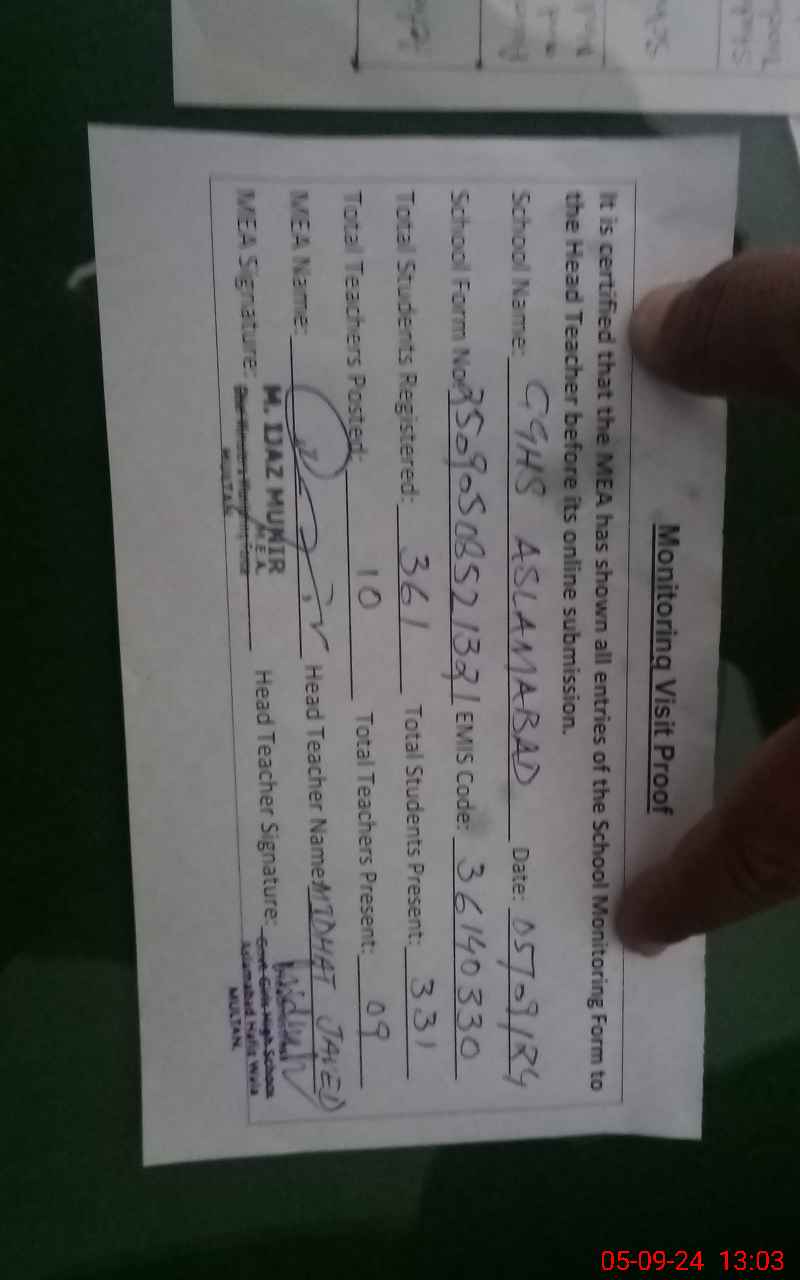 Monitoring Visit Proof
It is certified that the MEA has shown all entries of the School Monitoring Form to
the Head Teacher before its online submission.
School Name: GGHS ASLAMABAD Date: 05/09/24
School Form No: EMIS Code: 36140330
Total Students Registered: 361 Total Students Present: 331
Total Teachers Posted: 10 Total Teachers Present: 09
MEA Name: Head Teacher Name: MIDHAT JAVED
M. IJAZ MUNIR
M.E.A.
MEA Signature: Head Teacher Signature:
MULTAN
Govt Girls High School
Islamabad Hafiz Wala
MULTAN.
05-09-24 13:03